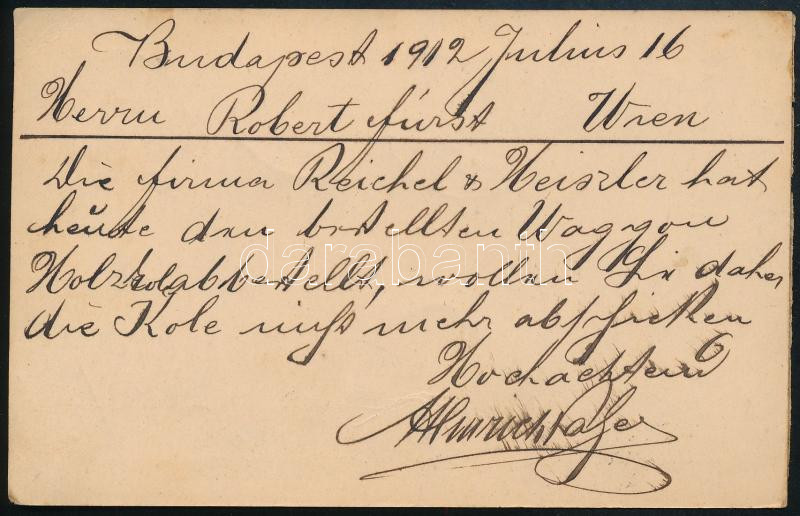 Budapest 1912 Julius 16
Herrn Robert fürst Wien
Die firma Reichel & Heiszler hat
heute den bestellten Waggon
Holzkole abbestellt, wollen Sie daher
die Kole nicht mehr abschicken
Hochachtend
darabanth